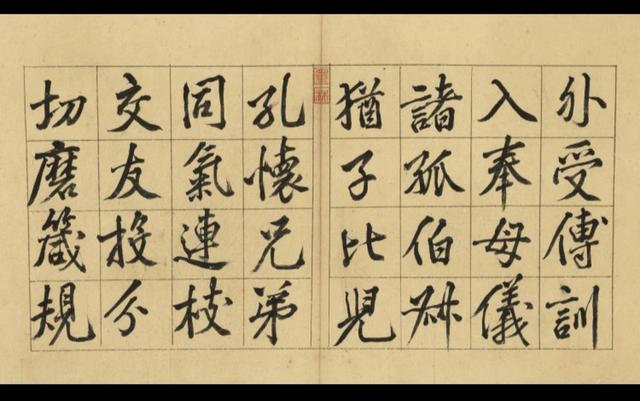 外受傅訓
入奉母儀
諸孤伯叔
猶子比兒
孔懷兄弟
同氣連枝
交友投分
切磨箴規